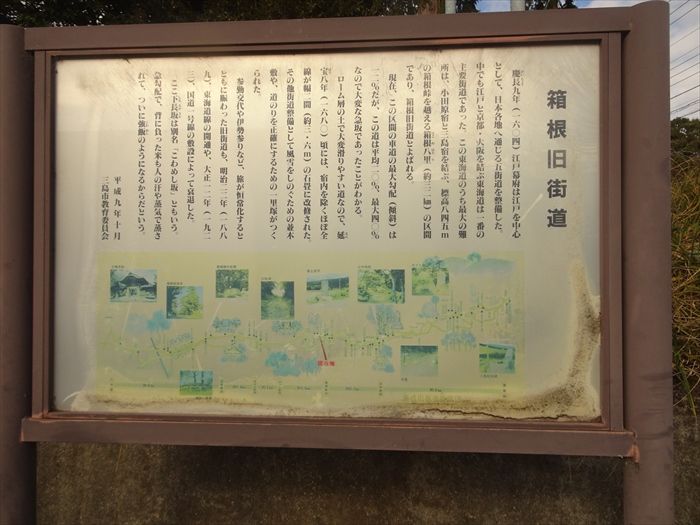 箱根旧街道
慶長九年（一六〇四）江戸幕府は江戸を中心
として、日本各地へ通じる五街道を整備した。
中でも江戸と京都・大阪を結ぶ東海道は一番の
主要街道であった。この東海道のうち最大の難
所は、小田原宿と三島宿を結ぶ、標高八四五m
の箱根峠を越える箱根八里（約三二㎞）の区間
であり、箱根旧街道とよばれる。
現在、この区間の車道の最大勾配（傾斜）は
一二％だが、この道は平均二〇％、最大四〇％
なので大変な急坂であったことがわかる。
ローム層の土で大変滑りやすい道なので、延
宝八年（一六八〇）頃には、宿内を除くほぼ全
線が幅二間（約三・六m）の石畳に改修された。
その他街道整備として風雪をしのぐための並木
敷や、道のりを正確にするための一里塚がつく
られた。
参勤交代や伊勢参りなど、旅が恒常化すると
ともに賑わった旧街道も、明治二二年（一八八
九）、東海道線の開通や、大正一二年（一九二
三）、国道一号線の敷設によって衰退した。
ここ下長坂は別名「こわめし坂」ともいう。
急勾配で、背に負った米も人の汗や蒸気で蒸さ
れて、ついに強飯のようになるからだという。
平成九年十月
三島市教育委員会
現在地